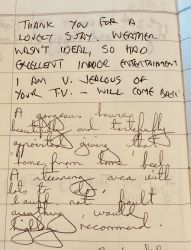 THANK YOU FOR A
LOVELY STAY. WEATHER
WASN'T IDEAL, SO HAD
EXCELLENT INDOOR ENTERTAINMENT
I AM V. JEALOUS OF
YOUR T.V. - WILL COME BACK!
A gorgeous house,
beautifully and tastefully
appointed giving that
'home from home' feel
A stunning area with
lots to
fault not
anything, would
highly recommend.